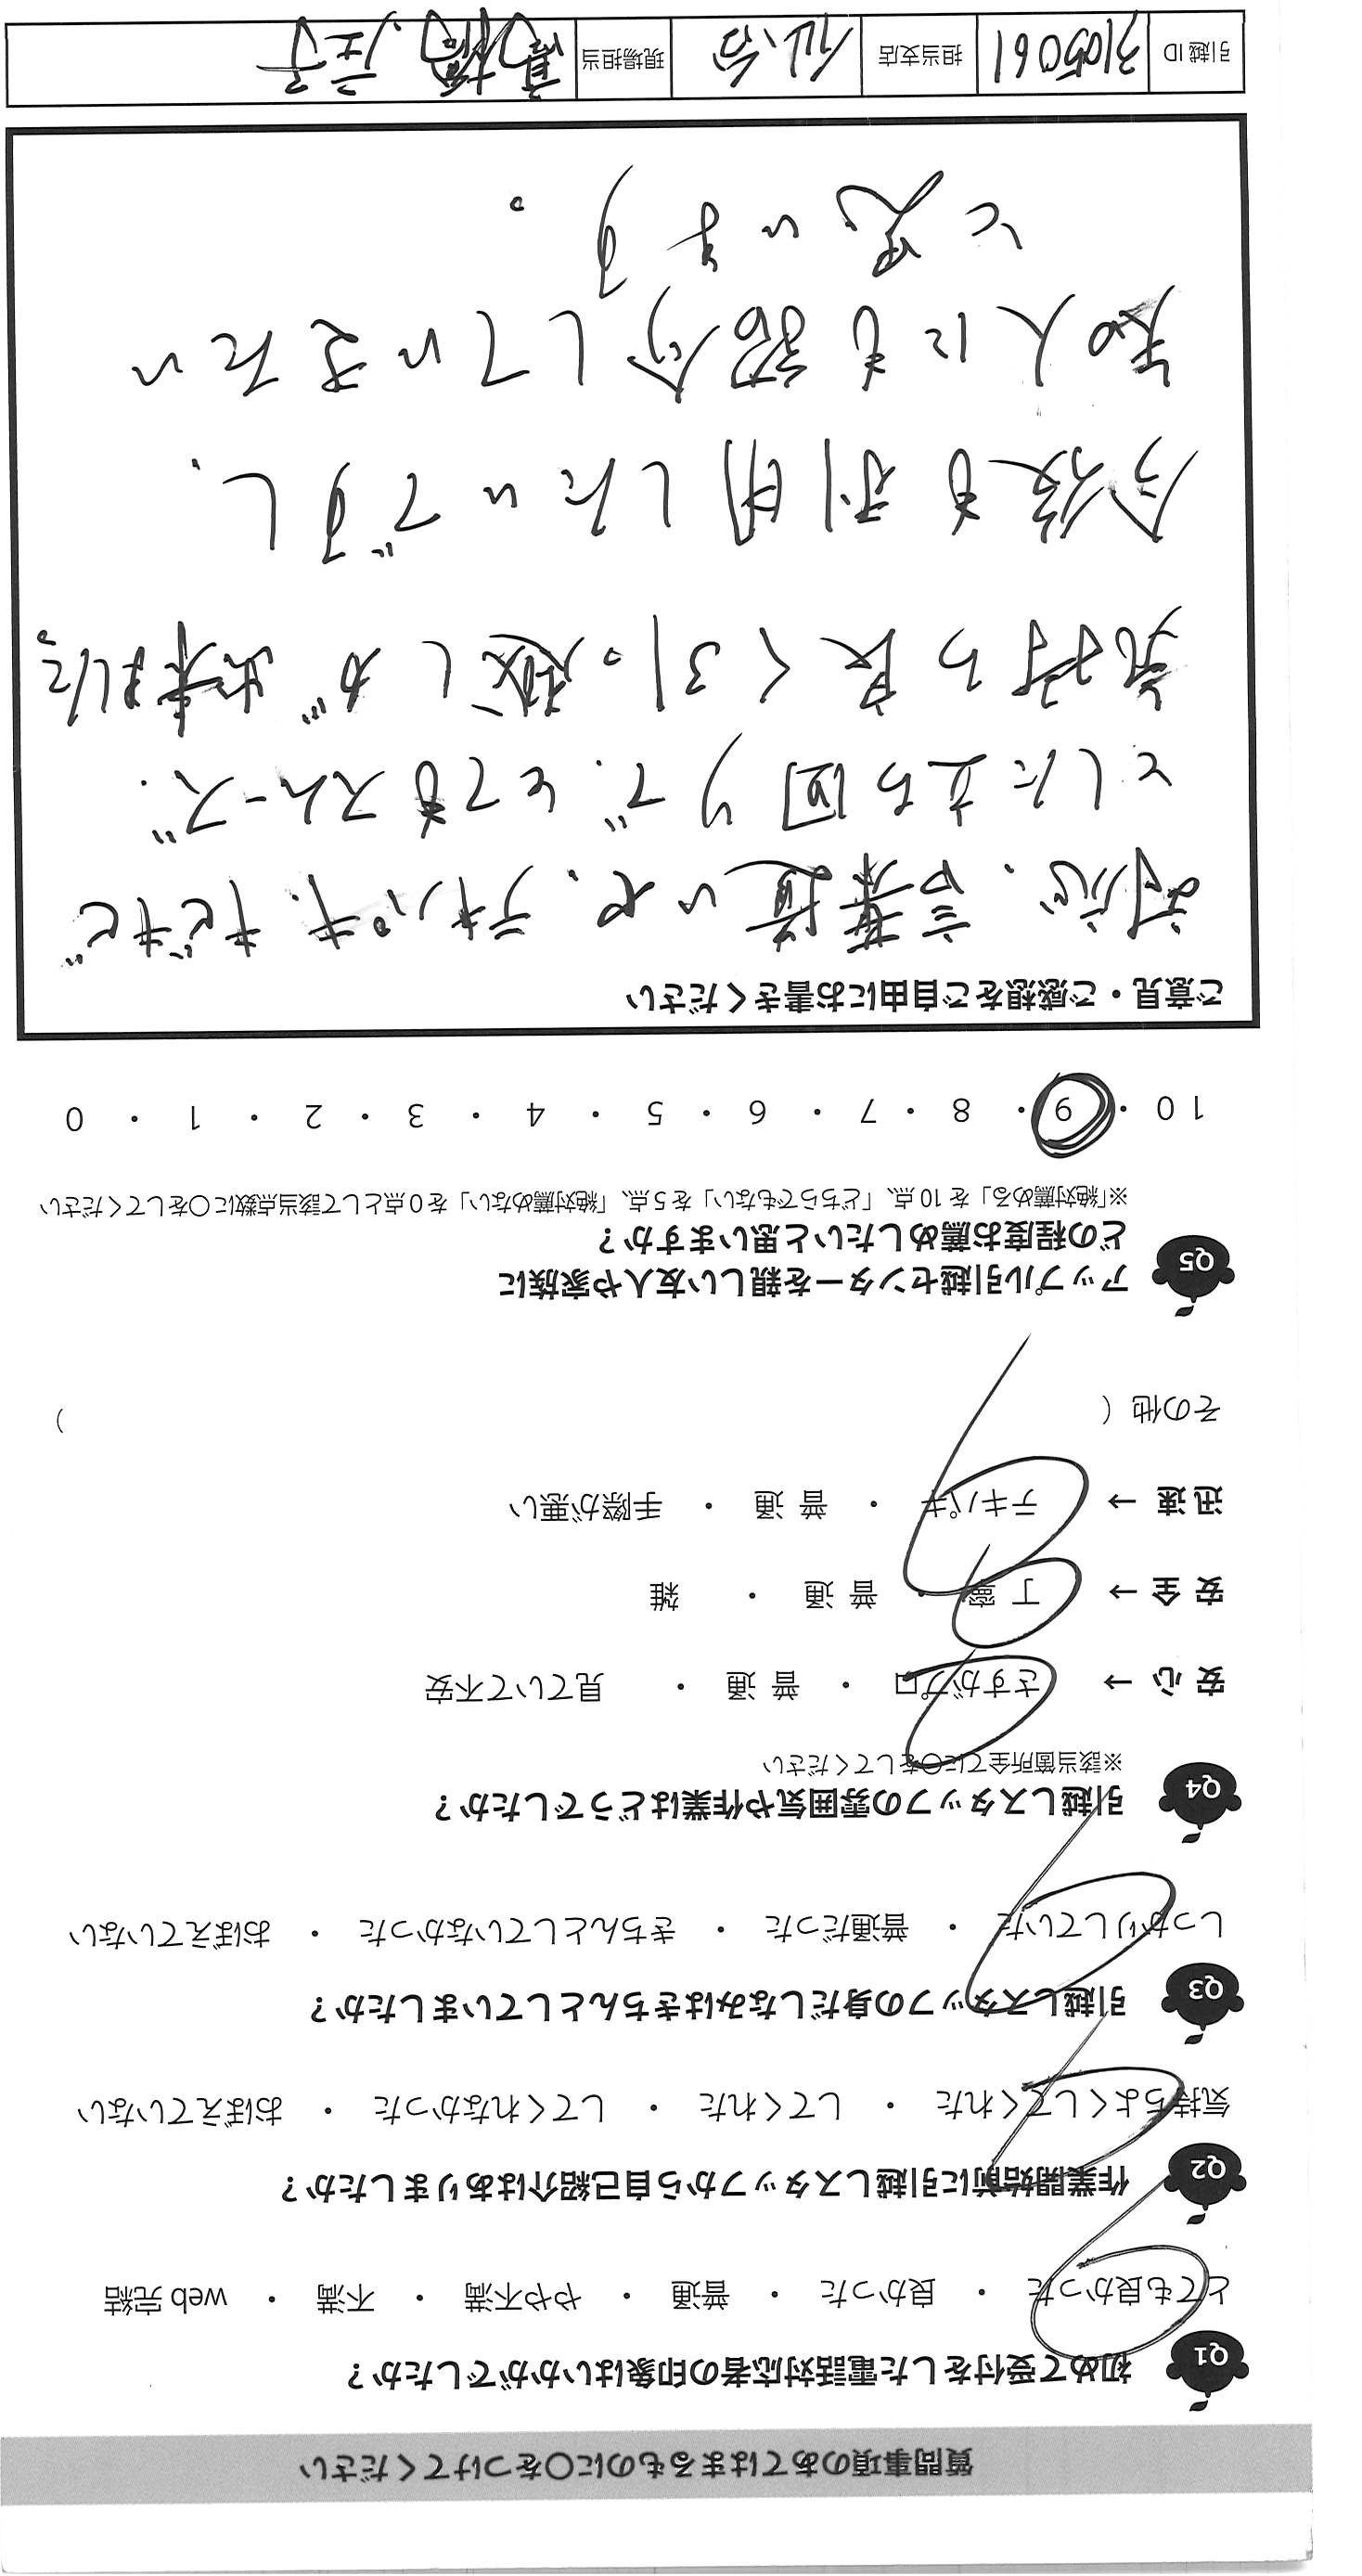 質問事項のあてはまるものに○をつけてください
Q1 初めて受付をした電話対応者の印象はいかがでしたか？
とても良かった ・ 良かった ・ 普通 ・ やや不満 ・ 不満 ・ web 完結
Q2 作業開始前に引越しスタッフから自己紹介はありましたか？
気持ちよくしてくれた ・ してくれた ・ してくれなかった ・ おぼえていない
Q3 引越しスタッフの身だしなみはきちんとしていましたか？
しっかりしていた ・ 普通だった ・ きちんとしていなかった ・ おぼえていない
Q4 引越しスタッフの雰囲気や作業はどうでしたか？
※該当箇所全てに○をしてください
安 心 → さすがプロ ・ 普 通 ・ 見ていて不安
安 全 → 丁 寧 ・ 普 通 ・ 雑
迅 速 → テキパキ ・ 普 通 ・ 手際が悪い
その他 ( )
Q5 アップル引越センターを親しい友人や家族に
どの程度お薦めしたいと思いますか？
※「絶対薦める」を 10 点、「どちらでもない」を 5 点、「絶対薦めない」を 0 点として該当点数に○をしてください
10 ・ 9 ・ 8 ・ 7 ・ 6 ・ 5 ・ 4 ・ 3 ・ 2 ・ 1 ・ 0
ご意見・ご感想をご自由にお書きください
対応、言葉遣いや、テキパキ、キビキビ
とした立ち回りで、とてもスムーズ、
気持ち良く引っ越しが出来ました。
今後も利用したいですし、
知人にも紹介していきたい
と思います。
引越 ID 3105061 担当支店 仙台 現場担当 髙橋、